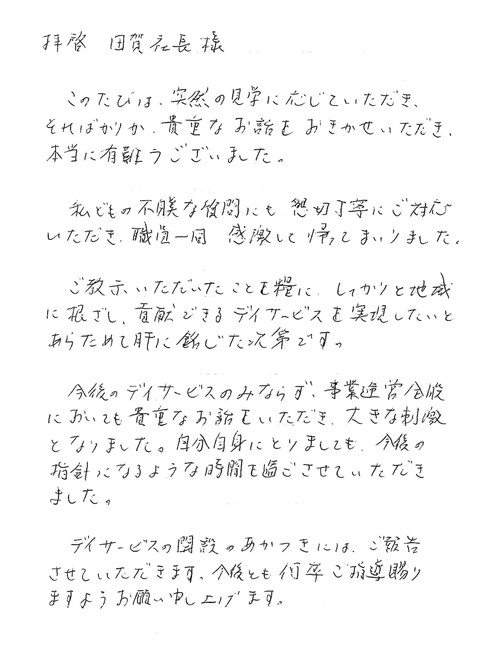 拝啓 田賀社長様
このたびは、突然の見学に応じていただき、
そればかりか、貴重なお話をおきかせいただき、
本当に有難うございました。
私どもの不躾な質問にも 懇切丁寧にご対応
いただき、職員一同 感激して帰ってまいりました。
ご教示いただいたことを糧に、しっかりと地域
に根ざし、貢献できるデイサービスを実現したいと
あらためて肝に銘じた次第です。
今後のデイサービスのみならず、事業運営全般
においても貴重なお話をいただき、大きな刺激
となりました。自分自身にとりましても、今後の
指針になるような時間を過ごさせていただき
ました。
デイサービスの開設のあかつきには、ご報告
させていただきます、今後とも何卒ご指導賜り
ますようお願い申し上げます。